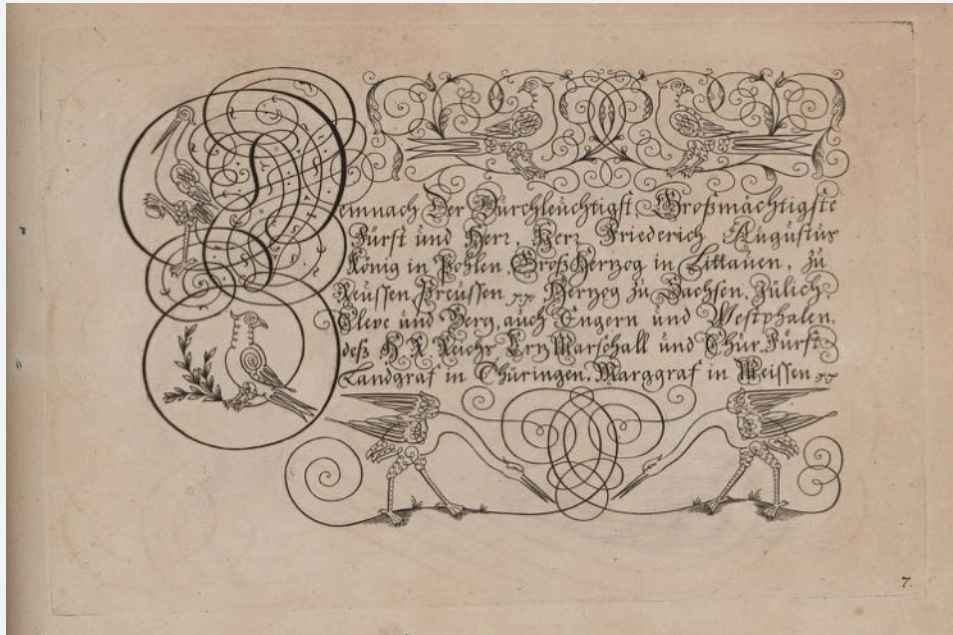 Demnach Der Durchleuchtigst, Großmächtigste
Fürst und Herr, Herr Friederich Augustus
König in Pohlen, Groß Hertzog in Littauen, zu
Reüssen Preüssen Hertzog zu Sachsen, Jülich,
Cleve und Berg, auch Engern und Westphalen,
deß H. R. Reichs Ertz Marschall und Chur. Fürst
Landgraf in Thüringen, Marggraf in Meissen
7.